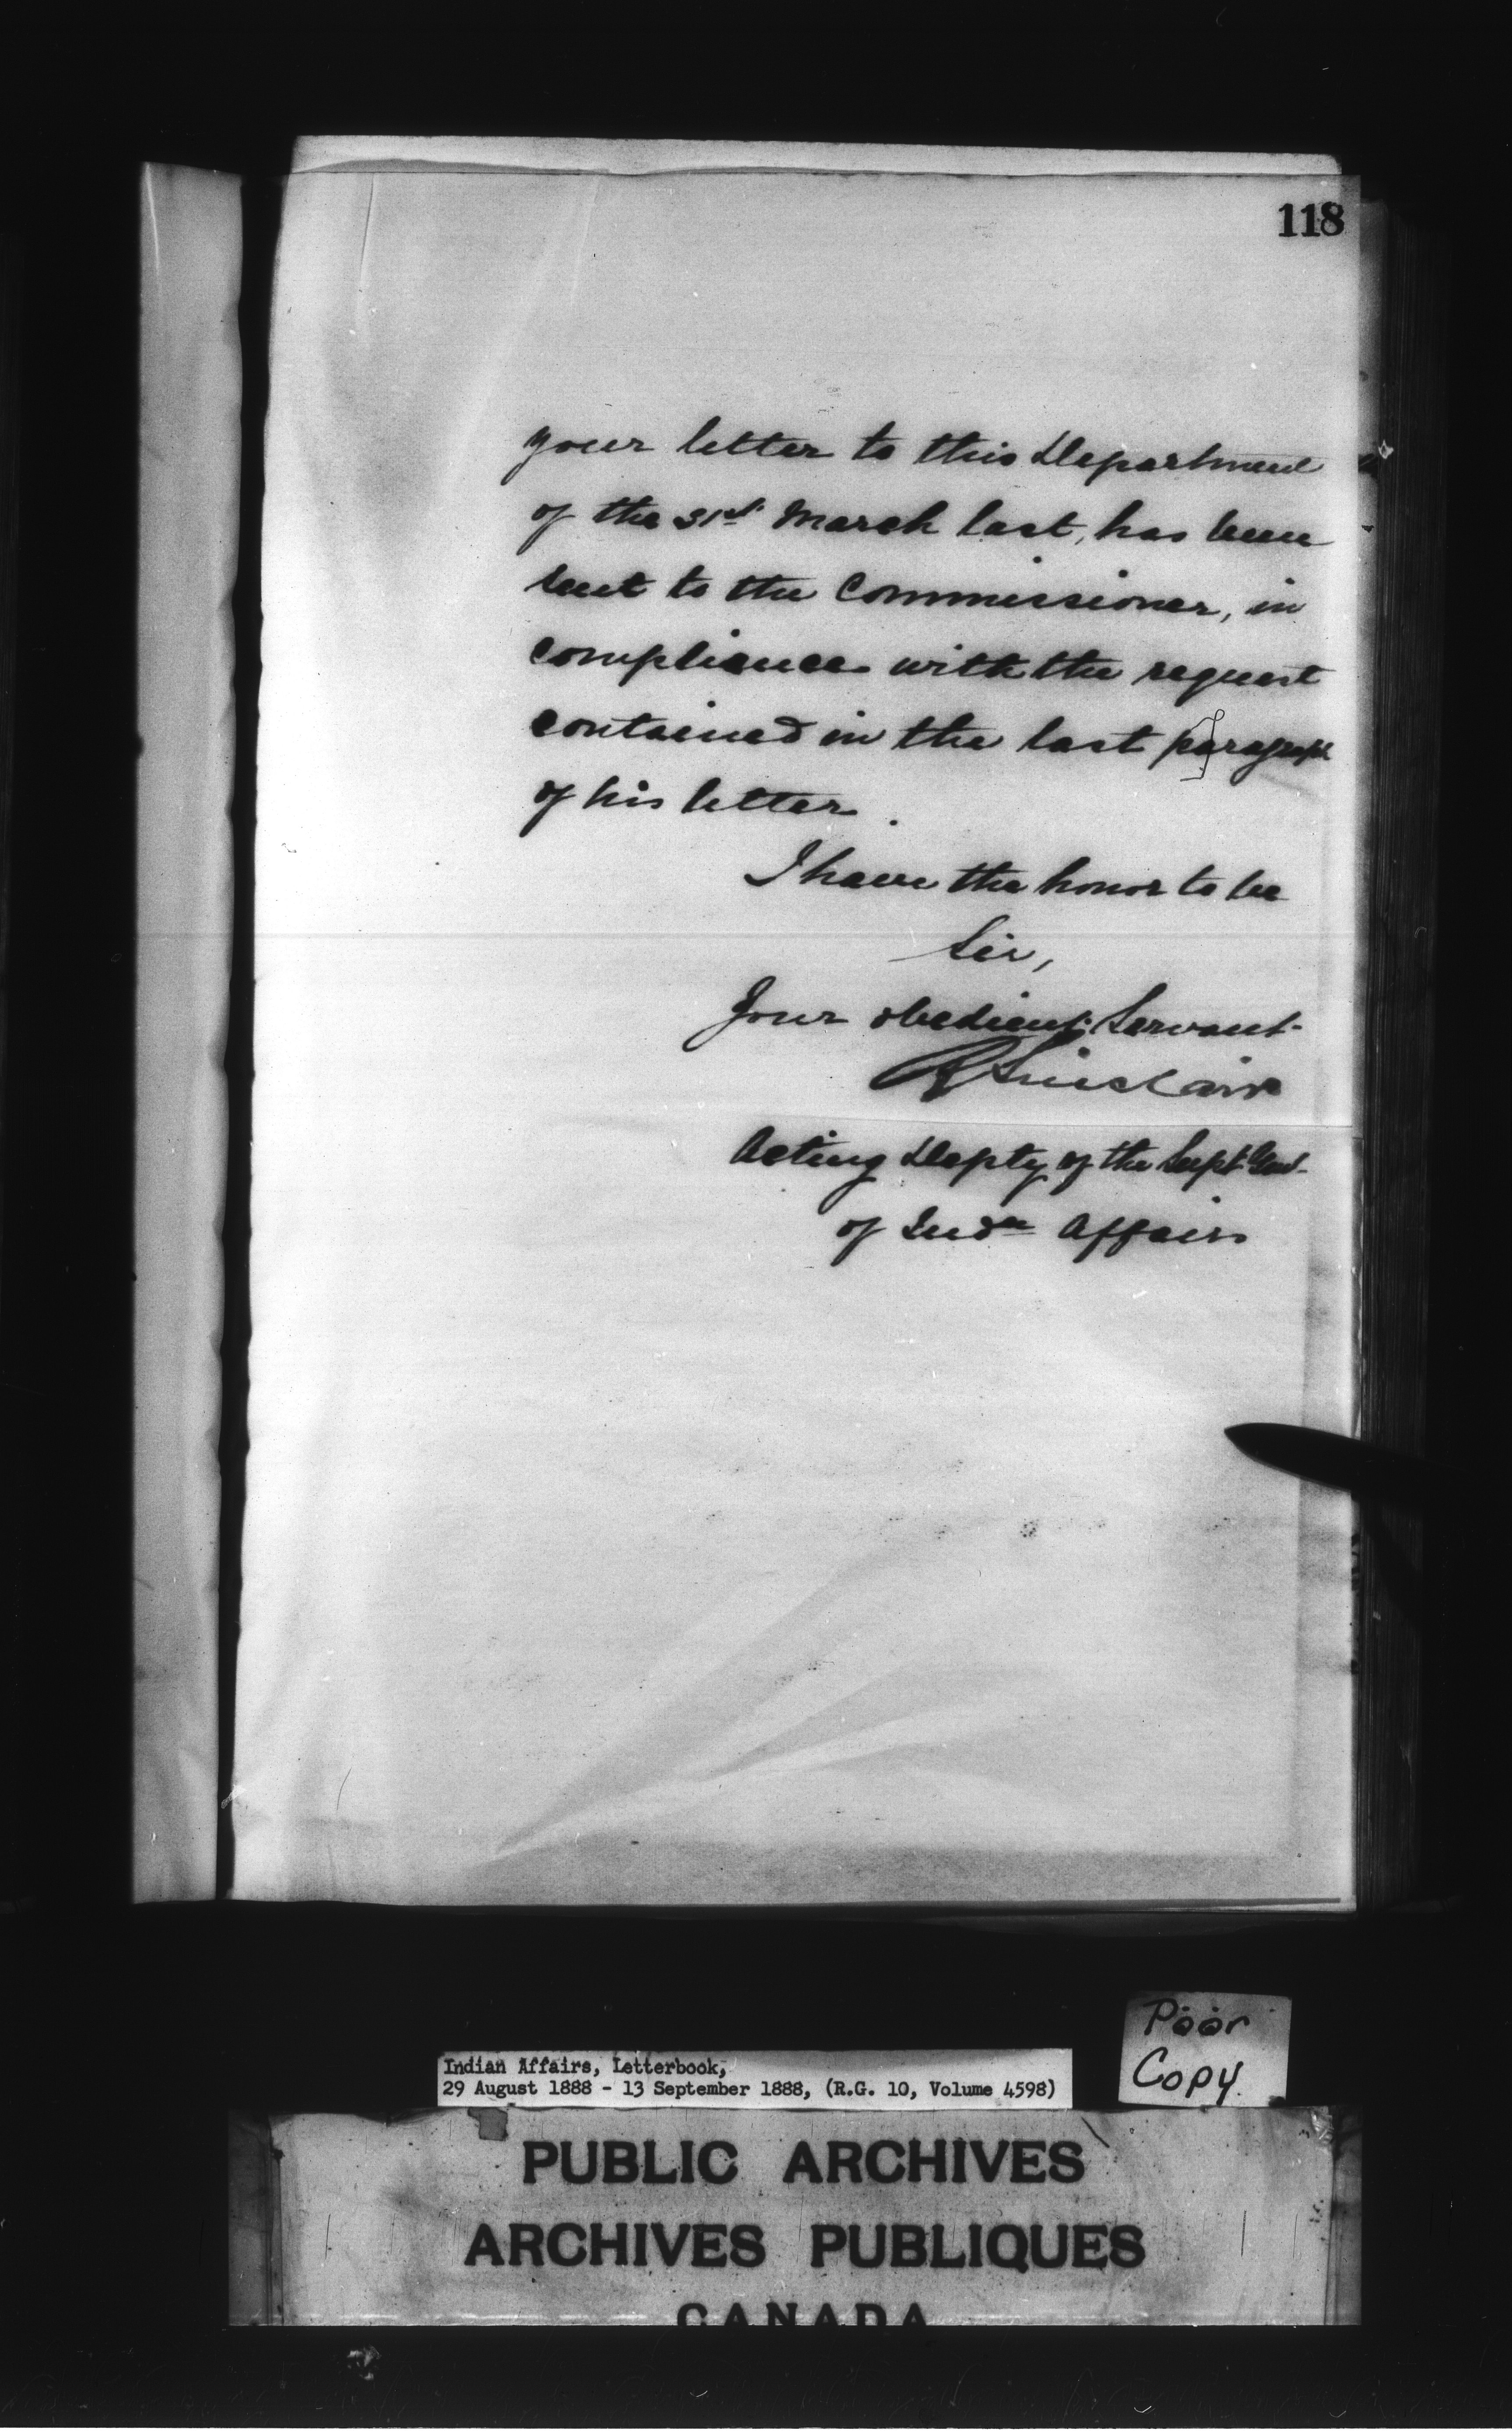 118
your letter to this Department
of the 31st March last, has been
sent to the Commissioner, in
compliance with the request
contained in the last paragraph
of his letter.
I have the honor to be
Sir,
Your obedient Servant
R Sinclair
Acting Depty of the Supt Genl
of Indn Affairs
Poor
Copy.
Indian Affairs, Letterbook,
29 August 1888 - 13 September 1888, (R.G. 10, Volume 4598)
PUBLIC ARCHIVES
ARCHIVES PUBLIQUES
CANADA